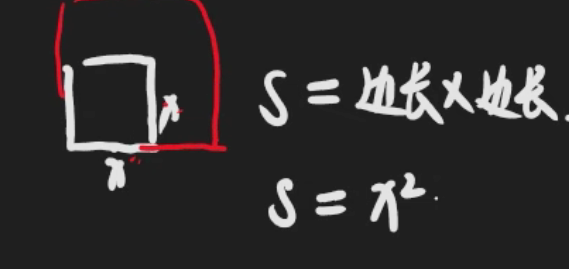 x
x
S = 边长×边长.
S = x².